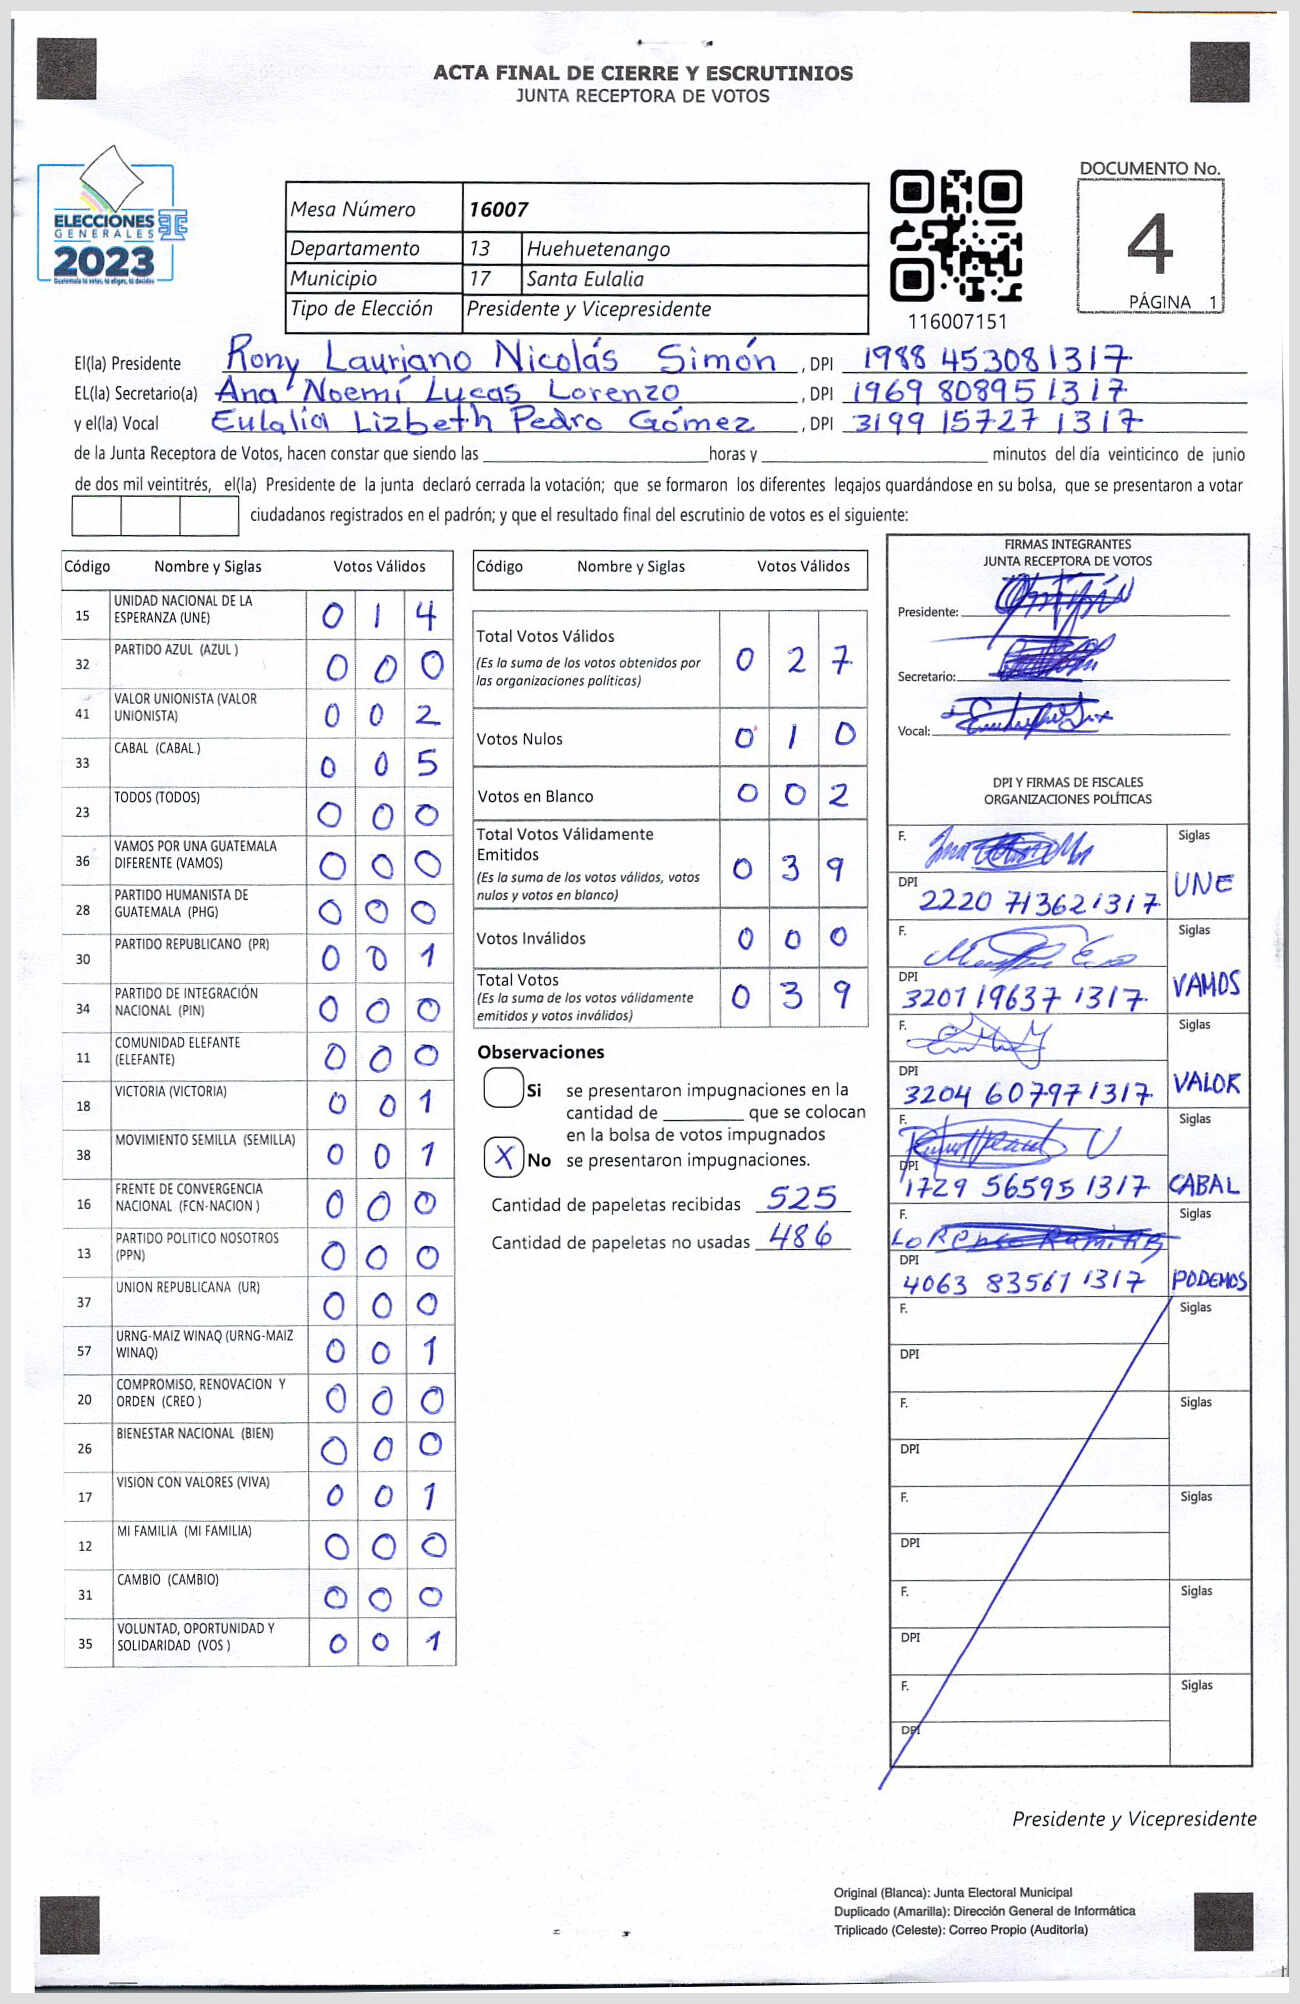 ACTA FINAL DE CIERRE Y ESCRUTINIOS
JUNTA RECEPTORA DE VOTOS
ELECCIONES
GENERALES
2023
Guatemala tú votas, tú eliges, tú decides
Mesa Número 16007
Departamento 13 Huehuetenango
Municipio 17 Santa Eulalia
Tipo de Elección Presidente y Vicepresidente
116007151
DOCUMENTO No.
4
PÁGINA 1
El(la) Presidente Rony Lauriano Nicolás Simón, DPI 1988 45308 1317
EL(la) Secretario(a) Ana Noemí Lucas Lorenzo, DPI 1969 80895 1317
y el(la) Vocal Eulalia Lizbeth Pedro Gómez, DPI 3199 15727 1317
de la Junta Receptora de Votos, hacen constar que siendo las horas y minutos del día veinticinco de junio
de dos mil veintitrés, el(la) Presidente de la junta declaró cerrada la votación; que se formaron los diferentes legajos guardándose en su bolsa, que se presentaron a votar
ciudadanos registrados en el padrón; y que el resultado final del escrutinio de votos es el siguiente:
Código Nombre y Siglas Votos Válidos
15 UNIDAD NACIONAL DE LA ESPERANZA (UNE) 0 1 4
32 PARTIDO AZUL (AZUL ) 0 0 0
41 VALOR UNIONISTA (VALOR UNIONISTA) 0 0 2
33 CABAL (CABAL ) 0 0 5
23 TODOS (TODOS) 0 0 0
36 VAMOS POR UNA GUATEMALA DIFERENTE (VAMOS) 0 0 0
28 PARTIDO HUMANISTA DE GUATEMALA (PHG) 0 0 0
30 PARTIDO REPUBLICANO (PR) 0 0 1
34 PARTIDO DE INTEGRACIÓN NACIONAL (PIN) 0 0 0
11 COMUNIDAD ELEFANTE (ELEFANTE) 0 0 0
18 VICTORIA (VICTORIA) 0 0 1
38 MOVIMIENTO SEMILLA (SEMILLA) 0 0 1
16 FRENTE DE CONVERGENCIA NACIONAL (FCN-NACION ) 0 0 0
13 PARTIDO POLITICO NOSOTROS (PPN) 0 0 0
37 UNION REPUBLICANA (UR) 0 0 0
57 URNG-MAIZ WINAQ (URNG-MAIZ WINAQ) 0 0 1
20 COMPROMISO, RENOVACION Y ORDEN (CREO ) 0 0 0
26 BIENESTAR NACIONAL (BIEN) 0 0 0
17 VISION CON VALORES (VIVA) 0 0 1
12 MI FAMILIA (MI FAMILIA) 0 0 0
31 CAMBIO (CAMBIO) 0 0 0
35 VOLUNTAD, OPORTUNIDAD Y SOLIDARIDAD (VOS ) 0 0 1
Código Nombre y Siglas Votos Válidos
Total Votos Válidos 0 2 7
(Es la suma de los votos obtenidos por
las organizaciones politicas)
Votos Nulos 0 1 0
Votos en Blanco 0 0 2
Total Votos Válidamente
Emitidos 0 3 9
(Es la suma de los votos válidos, votos
nulos y votos en blanco)
Votos Inválidos 0 0 0
Total Votos 0 3 9
(Es la suma de los votos válidamente
emitidos y votos inválidos)
Observaciones
Si se presentaron impugnaciones en la
cantidad de que se colocan
en la bolsa de votos impugnados
X No se presentaron impugnaciones.
Cantidad de papeletas recibidas 525
Cantidad de papeletas no usadas 486
FIRMAS INTEGRANTES
JUNTA RECEPTORA DE VOTOS
Presidente:
Secretario:
Vocal:
DPI Y FIRMAS DE FISCALES
ORGANIZACIONES POLÍTICAS
F. Siglas
DPI 2220 71362 1317 UNE
F. Siglas
DPI 3201 19637 1317 VAMOS
F. Siglas
DPI 3204 60797 1317 VALOR
F. Siglas
DPI 1729 56595 1317 CABAL
F. Siglas
DPI 4063 83561 1317 PODEMOS
F. Siglas
DPI
F. Siglas
DPI
F. Siglas
DPI
F. Siglas
DPI
F. Siglas
DPI
Presidente y Vicepresidente
Original (Blanca): Junta Electoral Municipal
Duplicado (Amarilla): Dirección General de Informática
Triplicado (Celeste): Correo Propio (Auditoría)